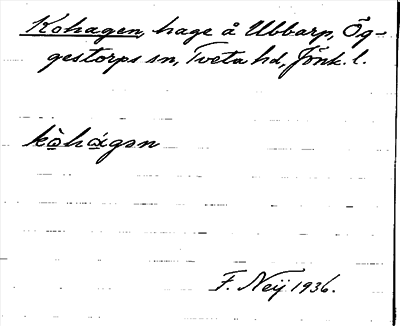 Kohagen, hage å Ubbarp, Ög-
gestorps sn, Tveta hd, Jönk. l.
kòhágən
F. Neij 1936.